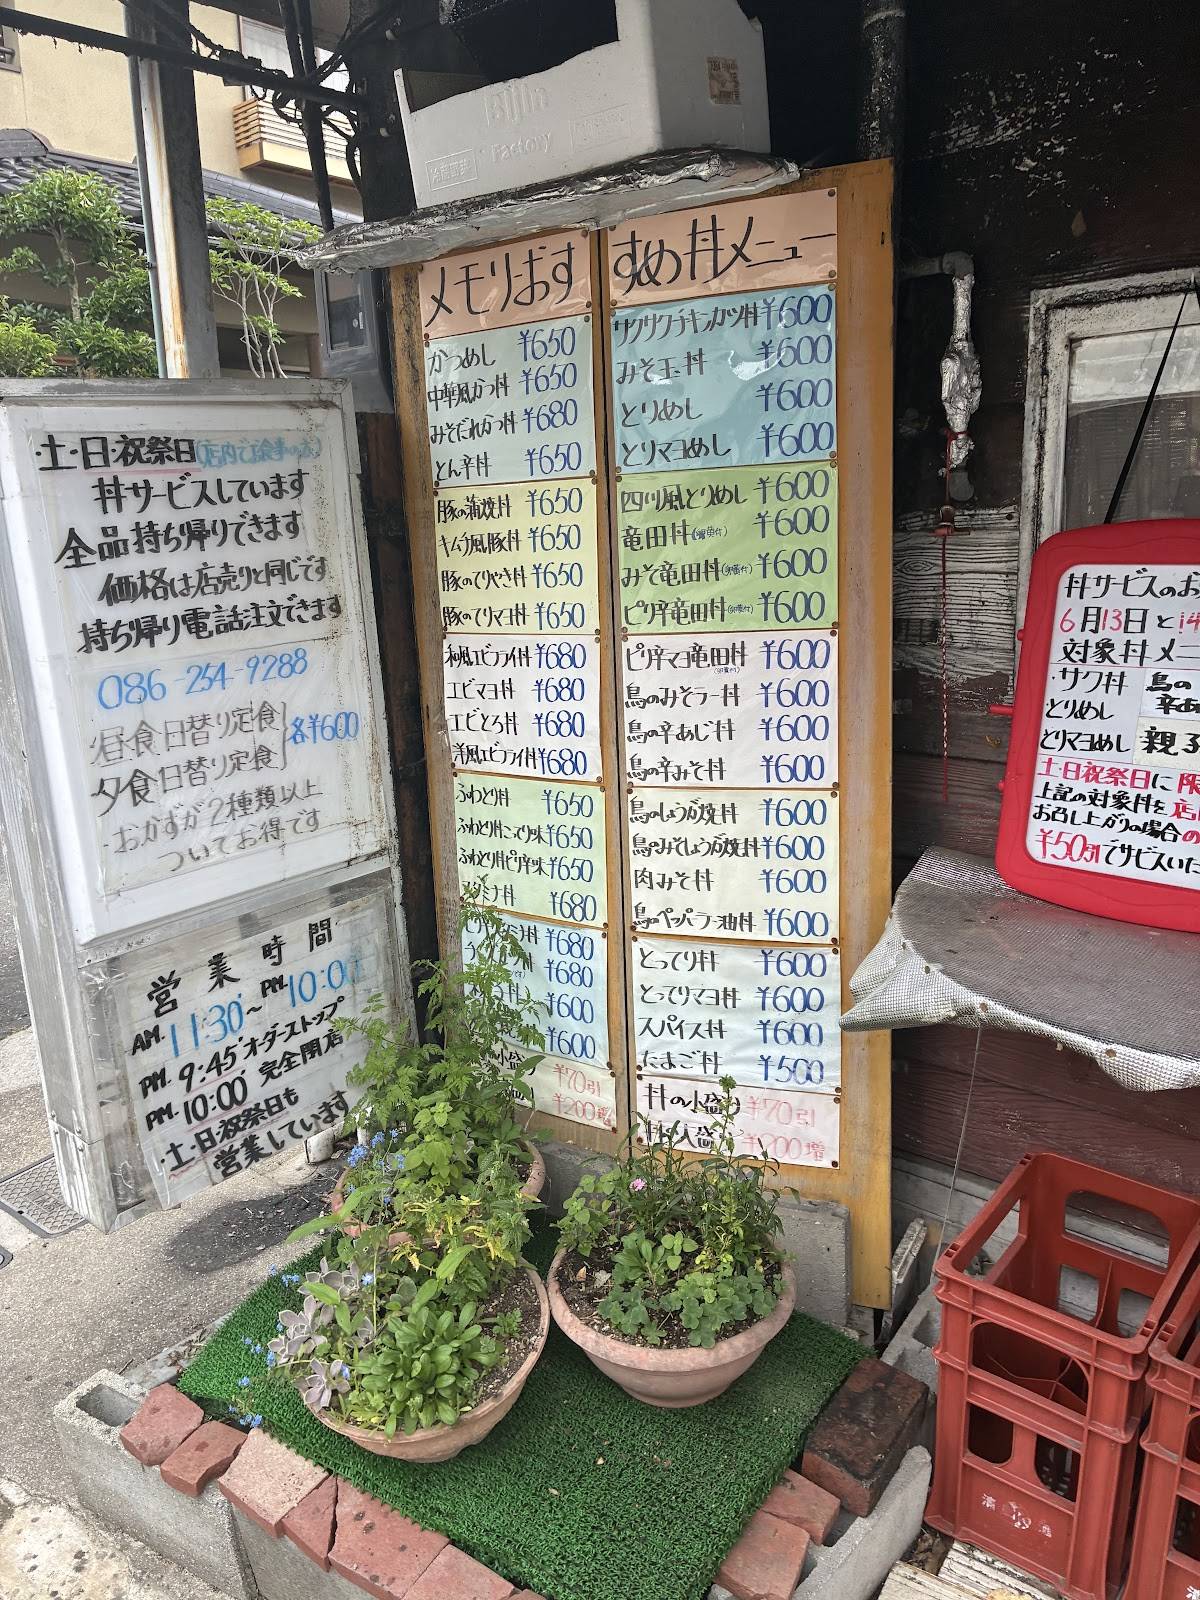 Bijin
Factory
メモリおすすめ丼メニュー
かつめし ¥650
中華風かつ丼 ¥650
みそだれかつ丼 ¥680
とん辛丼 ¥650
豚の蒲焼丼 ¥650
キムチ風豚丼 ¥650
豚のてりやき丼 ¥650
豚のてりマヨ丼 ¥650
和風エビフライ丼 ¥680
エビマヨ丼 ¥680
エビとろ丼 ¥680
洋風エビフライ丼 ¥680
ふわとり丼 ¥650
ふわとり丼こってり味 ¥650
ふわとり丼ピリ辛味 ¥650
スタミナ丼 ¥680
¥680
¥680
¥600
¥600
小盛り ¥70引
¥200増
サクサクチキンカツ丼 ¥600
みそ玉丼 ¥600
とりめし ¥600
とりマヨめし ¥600
四川風とりめし ¥600
竜田丼(卵黄付) ¥600
みそ竜田丼(卵黄付) ¥600
ピリ辛竜田丼(卵黄付) ¥600
ピリ辛マヨ竜田丼(卵黄付) ¥600
鳥のみそラー丼 ¥600
鳥の辛あじ丼 ¥600
鳥の辛みそ丼 ¥600
鳥のしょうが焼丼 ¥600
鳥のみそしょうが焼丼 ¥600
肉みそ丼 ¥600
鳥のペッパーラー油丼 ¥600
とってり丼 ¥600
とってりマヨ丼 ¥600
スパイス丼 ¥600
たまご丼 ¥500
丼の小盛り ¥70引
丼の大盛り ¥200増
・土・日・祝祭日(店内でお食事のみ)
丼サービスしています
全品持ち帰りできます
価格は店売りと同じです
持ち帰り電話注文できます
086-254-9288
・昼食日替り定食
・夕食日替り定食
各¥600
・おかずが2種類以上
ついてお得です
営業時間
AM. 11:30~PM. 10:00
PM. 9:45 オーダーストップ
PM. 10:00 完全閉店
・土・日・祝祭日も
営業しています
丼サービスのお
6月13日と14
対象丼メニ
・サク丼
とりめし
とりマヨめし
鳥の
辛あ
親子
土・日・祝祭日に限
上記の対象丼を店
お召し上がりの場合の
¥50引でサービスいた